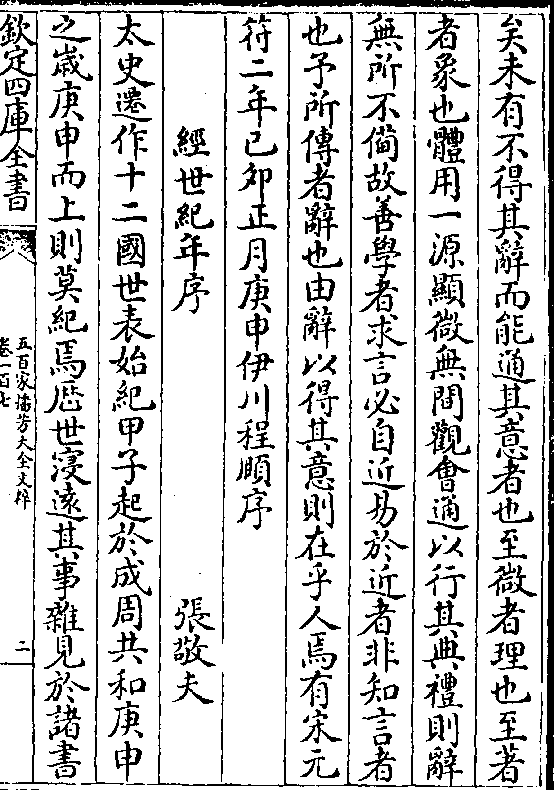 矣未有不得其辭而能通其意者也至微者理也至著
者象也體用一源顯微無間觀會通以行其典禮則辭
無所不備故善學者求言必自近易於近者非知言者
也予所傳者辭也由辭以得其意則在乎人焉有宋元
符二年己卯正月庚申伊川程頤序
經世紀年序
張敬夫
太史遷作十二國世表始紀甲子起於成周共和庚申
之歲庚申而上則莫紀焉歴世寖遠其事雜見於諸書
欽定四庫全書
五百家播芳大全文粹
卷一百七
二